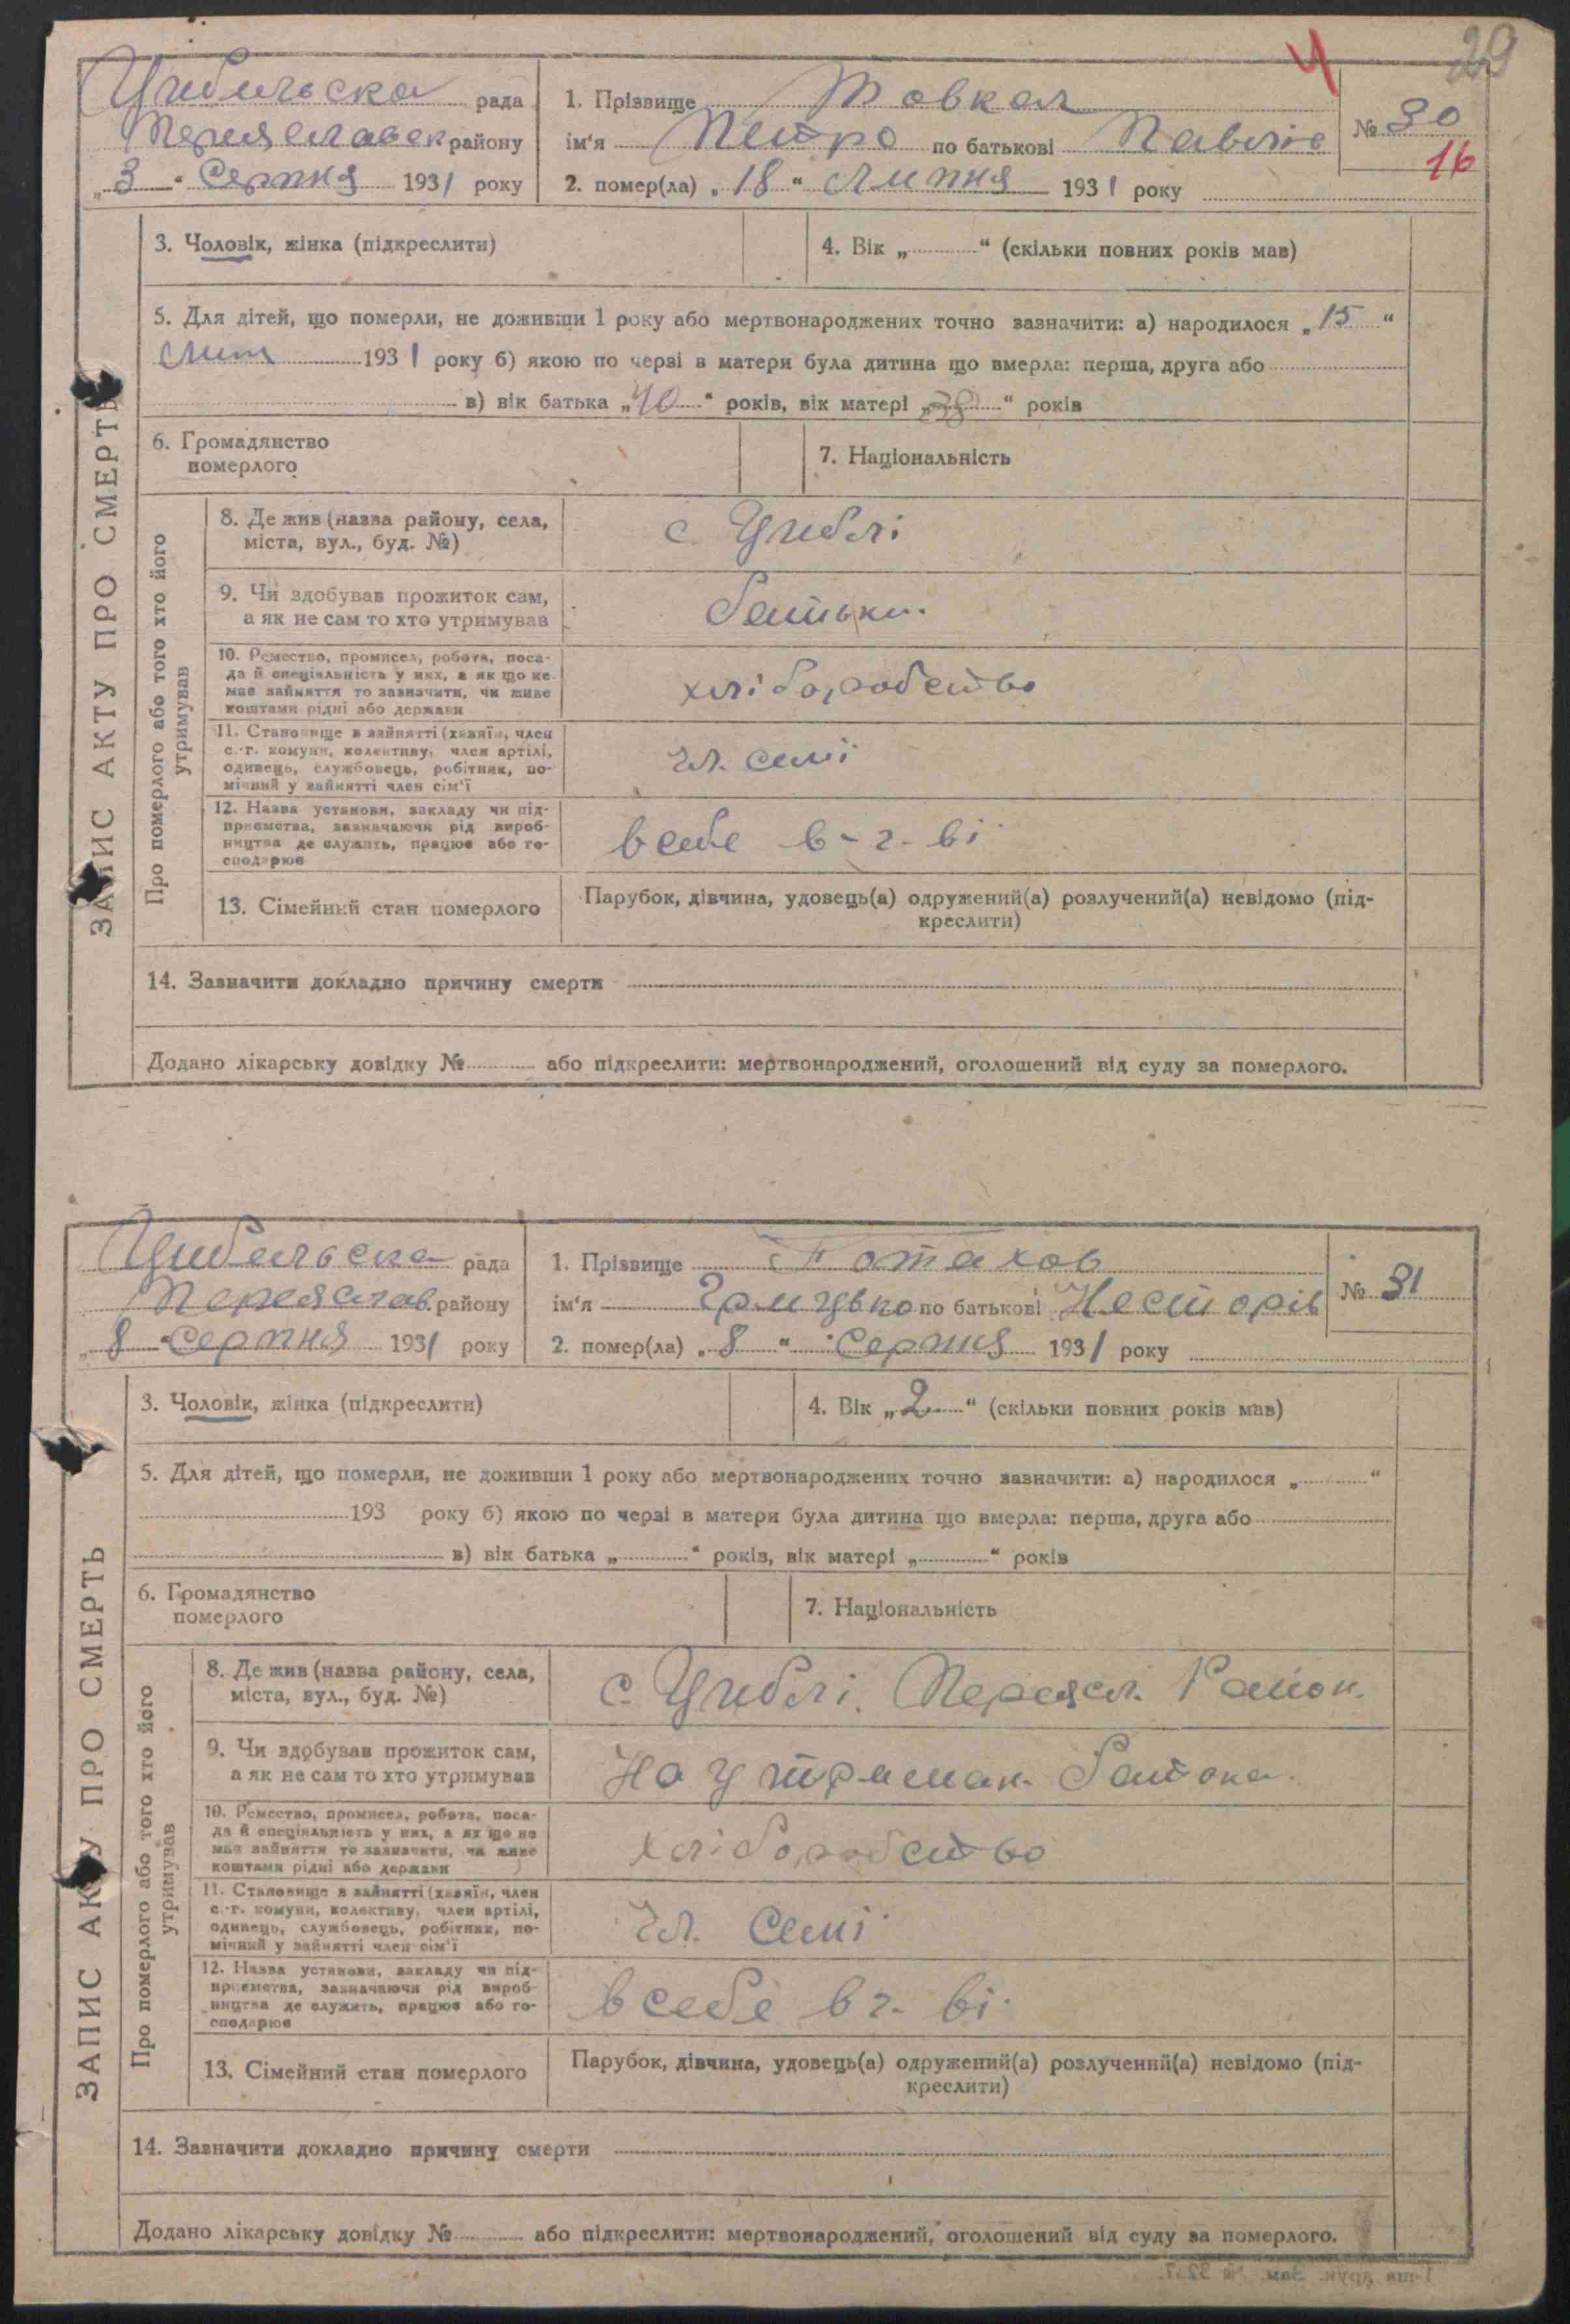 29
4
Цибильска рада
Переяславск району
„3“ Серпня 1931 року
1. Прізвище Товкал
ім'я Петро по батькові Павлів
2. помер(ла) „18“ Липня 1931 року
№ 30
16
ЗАПИС АКТУ ПРО СМЕРТЬ
3. Чоловік, жінка (підкреслити)
4. Вік „ “ (скільки повних років мав)
5. Для дітей, що померли, не доживши 1 року або мертвонароджених точно зазначити: а) народилося „15“
Лип 1931 року б) якою по черзі в матери була дитина що вмерла: перша, друга або
в) вік батька „40“ років, вік матері „38“ років
6. Громадянство
померлого
7. Національність
Про померлого або того хто його
утримував
8. Де жив (назва району, села,
міста, вул., буд. №)
с Циблі
9. Чи здобував прожиток сам,
а як не сам то хто утримував
батьки
10. Ремество, промисел, робота, поса-
да й спеціяльність у них, а як що не
має зайняття то зазначити, чи живе
коштами рідні або держави
хліборобство
11. Становище в зайнятті (хазяїн, член
с.-г. комуни, колективу, член артілі,
одинець, службовець, робітник, по-
мічний у зайнятті член сім'ї
чл. семї
12. Назва установи, закладу чи під-
приємства, зазначаючи рід вироб-
ництва де служить, працює або го-
сподарює
в себе в-г-ві
13. Сімейний стан померлого
Парубок, дівчина, удовець(а) одружений(а) розлучений(а) невідомо (під-
креслити)
14. Зазначити докладно причину смерти
Додано лікарську довідку № або підкреслити: мертвонароджений, оголошений від суду за померлого.
Цибильска рада
Переяслав. району
„8“ Серпня 1931 року
1. Прізвище Потахов
ім'я Грицько по батькові Несторів
2. помер(ла) „8“ Серпня 1931 року
№ 31
ЗАПИС АКТУ ПРО СМЕРТЬ
3. Чоловік, жінка (підкреслити)
4. Вік „2“ (скільки повних років мав)
5. Для дітей, що померли, не доживши 1 року або мертвонароджених точно зазначити: а) народилося „ “
193 року б) якою по черзі в матери була дитина що вмерла: перша, друга або
в) вік батька „ “ років, вік матері „ “ років
6. Громадянство
померлого
7. Національність
Про померлого або того хто його
утримував
8. Де жив (назва району, села,
міста, вул., буд. №)
с. Циблі. Переясл. Район.
9. Чи здобував прожиток сам,
а як не сам то хто утримував
На утриман.
10. Ремество, промисел, робота, поса-
да й спеціяльність у них, а як що не
має зайняття то зазначити, чи живе
коштами рідні або держави
хліборобство
11. Становище в зайнятті (хазяїн, член
с.-г. комуни, колективу, член артілі,
одинець, службовець, робітник, по-
мічний у зайнятті член сім'ї
Чл. Семї
12. Назва установи, закладу чи під-
приємства, зазначаючи рід вироб-
ництва де служить, працює або го-
сподарює
в себе в г-ві
13. Сімейний стан померлого
Парубок, дівчина, удовець(а) одружений(а) розлучений(а) невідомо (під-
креслити)
14. Зазначити докладно причину смерти
Додано лікарську довідку № або підкреслити: мертвонароджений, оголошений від суду за померлого.